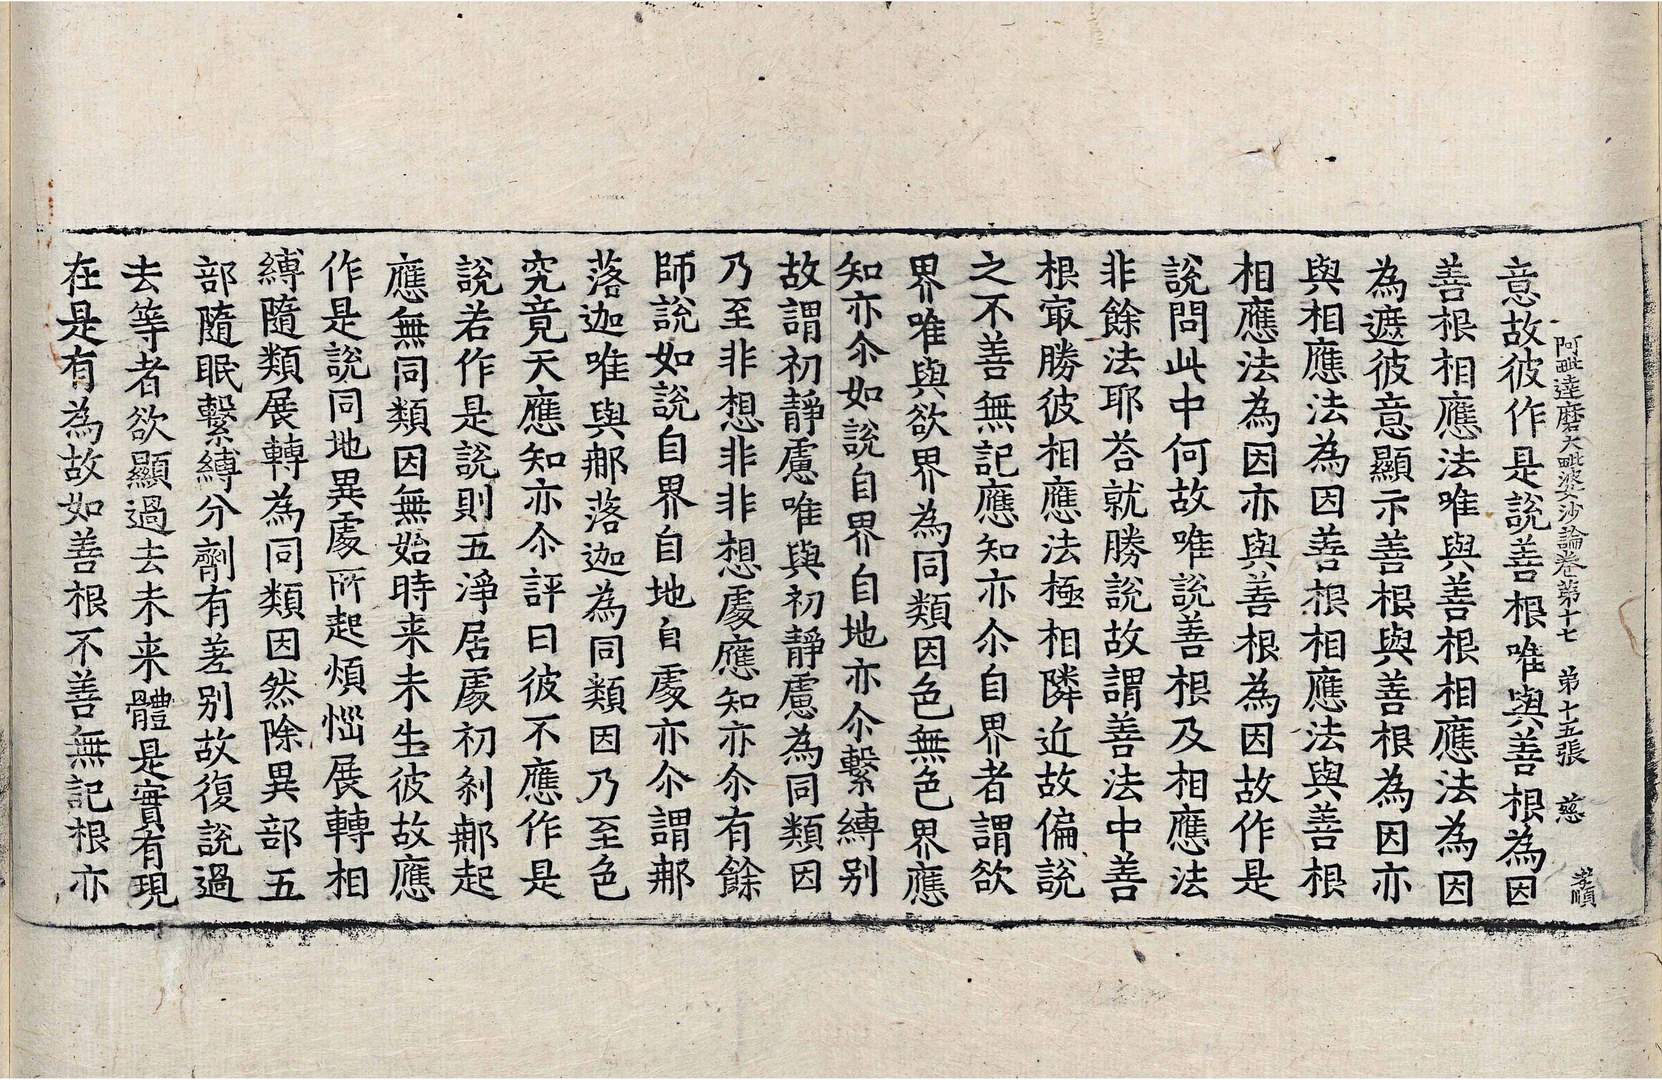 阿毗達磨大毗婆沙論卷第十七 第十五張 慈 孝順
意故彼作是說善根唯與善根為因
善根相應法唯與善根相應法為因
為遮彼意顯示善根與善根為因亦
與相應法為因善根相應法與善根
相應法為因亦與善根為因故作是
說問此中何故唯說善根及相應法
非餘法耶荅就勝說故謂善法中善
根㝡勝彼相應法極相隣近故偏說
之不善無記應知亦尒自界者謂欲
界唯與欲界為同類因色無色界應
知亦尒如說自界自地亦尒繫縛別
故謂初靜慮唯與初靜慮為同類因
乃至非想非非想處應知亦尒有餘
師說如說自界自地自處亦尒謂那
落迦唯與那落迦為同類因乃至色
究竟天應知亦尒評曰彼不應作是
說若作是說則五淨居處初剎那起
應無同類因無始時来未生彼故應
作是說同地異處所起煩惱展轉相
縛隨類展轉為同類因然除異部五
部隨眠繫縛分劑有差别故復說過
去等者欲顯過去未来體是實有現
在是有為故如善根不善無記根亦